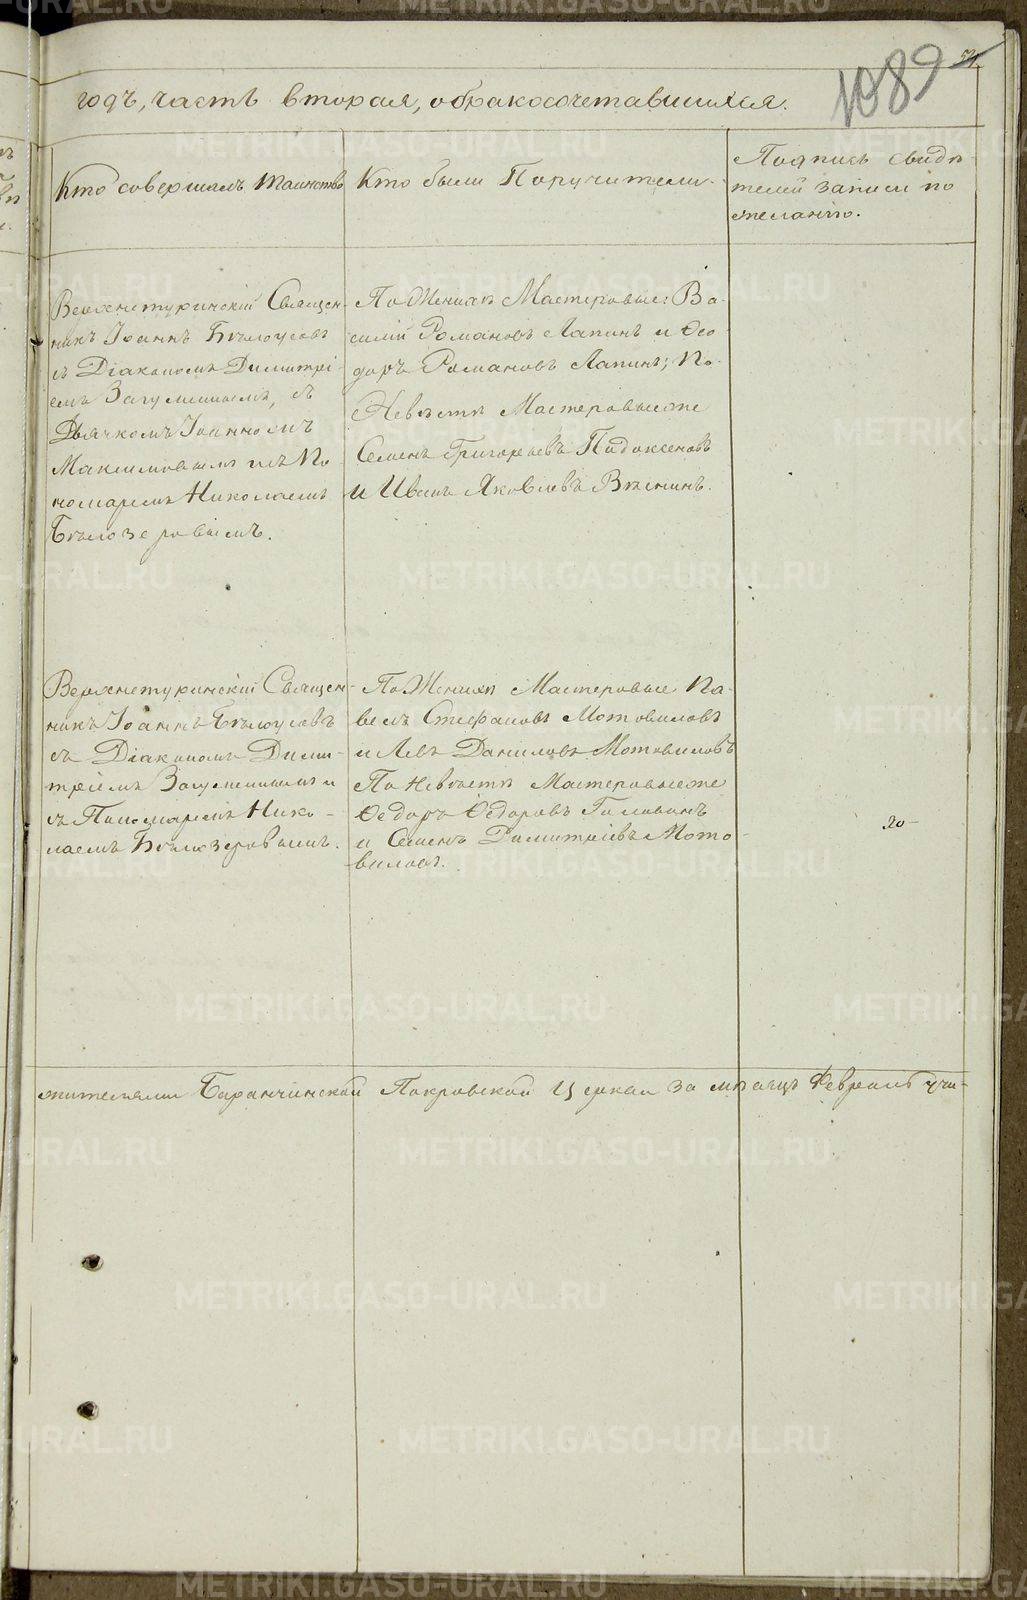 1089
годъ, часть вторая, о бракосочетавшихся.
Кто совершалъ таинство
Кто были Поручители.
Подпись свидѣ-
телей записи по
желанію.
Верхнетуринскій Священ-
никъ Іоаннъ Бѣлоусовъ
съ Діакономъ Димитрі-
емъ Загуменнымъ, съ
Дьячкомъ Іоанномъ
Максимовымъ и съ По
номаремъ Николаемъ
Бѣлозеровымъ.
По Женихѣ Мастеровые: Ва-
силій Романовъ Лапинъ и Ѳео
доръ Романовъ Лапинъ; По
Невѣстѣ Мастеровые же
Семенъ Григорьевъ Падоксеновъ
и Иванъ Яковлевъ Вяткинъ.
Верхнетуринскій Священ-
никъ Іоаннъ Бѣлоусовъ
съ Діакономъ Дими-
тріемъ Загуменнымъ и
съ Пономаремъ Нико-
лаемъ Бѣлозеровымъ.
По Женихѣ Мастеровые Па-
велъ Стефановъ Мотовиловъ
и Левъ Даниловъ Мотовиловъ
По Невѣстѣ Мастеровые же
Ѳедоръ Ѳедоровъ Голованъ
и Семенъ Димитріевъ Мото-
виловъ.
жителями Баранчинской Покровской Церкви за мѣсяцъ Февраль учи-
METRIKI.GASO-URAL.RU